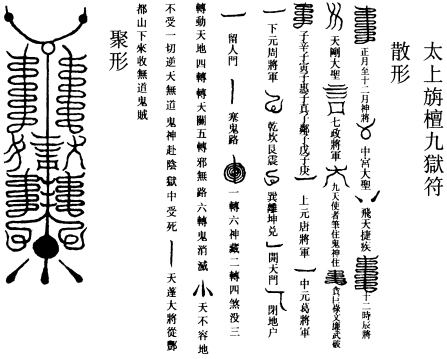 太上旃檀九獄符
散形
正月至十二月神將 中宮大聖 飛天捷疾 十二時辰將
天剛大聖 七政將軍 九天使者筆住鬼神住 貪巨祿文廉武破
上元唐將軍 中元葛將軍
下元周將軍 乾坎艮震 巽離坤兌 開天門 閉地户
留人門 寒鬼路 一轉六神藏二轉四煞没三
轉動天地四轉轉天關五轉邪無路六轉鬼消滅 天不容地
不受一切逆天無道鬼神赴陰獄中受死 天蓬大將從酆
都山下來收無道鬼賊
聚形